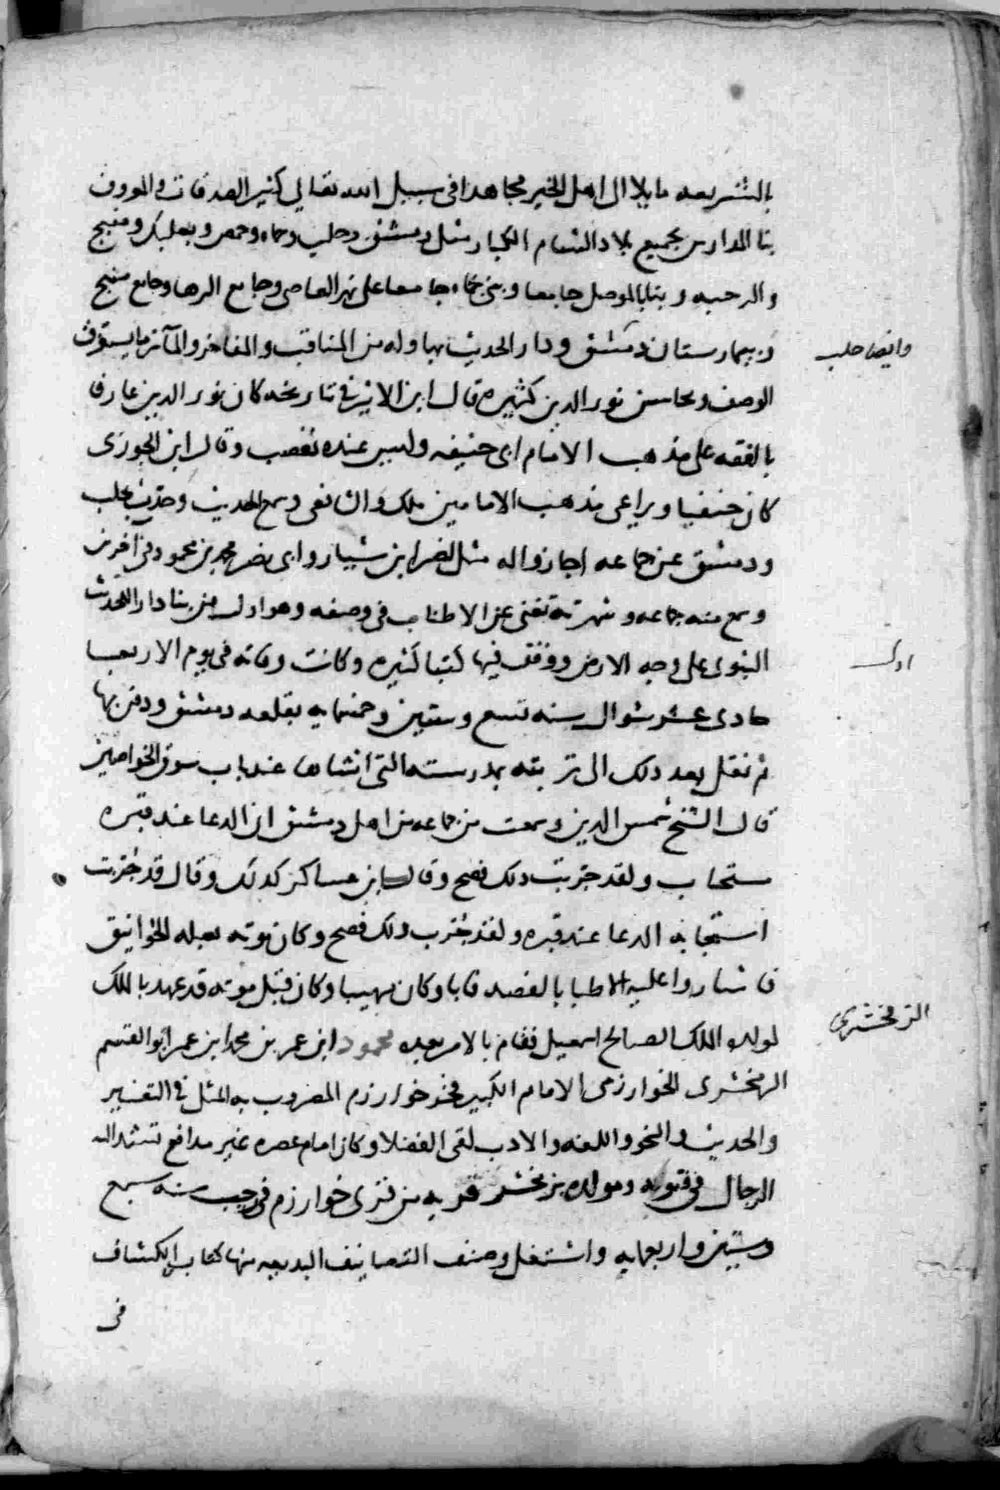 بالشريعه مايلا الى اهل الخير مجاهدا فى سبيل الله تعالى كثير الصدقات والوقوف
بنا المدارس بجميع بلاد الشام الكبار مثل دمشق وحلب وحماه وحمص وبعلبك ومنبج
والرحبه وبنا بالموصل جامعا وبنى بحماه جامعا على نهر العاصى وجامع الرها وجامع منبج
وبيمارستان دمشق ودار الحديث بها وله من المناقب والمفاخر والمآثر ما يستغرق
وايضا حلب
الوصف ومحاسن نور الدين كثيره قال ابن الاثير فى تاريخه كان نور الدين عارفا
بالفقه على مذهب الامام ابى حنيفه وليس عنده تعصب وقال ابن الجوزى
كان حنفيا ويراعى مذهب الامامين ملك والشافعى وسمع الحديث وحدث بحلب
ودمشق عن جماعه اجازوا له مثل نصر ابن سيار وابى نصر محمد بن محمود فى آخرين
وسمع منه جماعه وشهرته تغنى عن الاطناب فى وصفه وهو اول من بنا دار الحديث
النبوى على وجه الارض ووقف فيها كتبا كثيره وكانت وفاته فى يوم الاربعا
اول
حادى عشر شوال سنه تسع وستين وخمسمايه بقلعه دمشق ودفن بها
ثم نقل بعد ذلك الى تربته بمدرسته التى انشاها عند باب سوق الخواصين
قال الشيخ شمس الدين وسمعت من جماعه من اهل دمشق ان الدعا عند قبره
مستجاب ولقد جربت ذلك فصح وقال ابن عساكر كذلك وقال قد جربت
استجابه الدعا عند قبره ولقد جرب ذلك فصح وكان موته بعله الخوانيق
فاشاروا عليه الاطبا بالفصد فابا وكان مهيبا وكان قبل موته قد عهد بالملك
لولده الملك الصالح اسمعيل فقام بالامر بعده محمود ابن عمر بن محمد ابن عمر ابو القسم
الزمخشرى
الزمخشرى الخوارزمى الامام الكبير فخر خوارزم المضروب به المثل فى التفسير
والحديث والنحو واللغه والادب لقى الفضلا وكان امام عصره غير مدافع تشد اليه
الرجال فى فنونه ومولده بزمخشر قريه من قرى خوارزم فى رجب سنه سبع
وستين واربعمايه واشتغل وصنف التصانيف البديعه منها كتاب الكشاف
فى